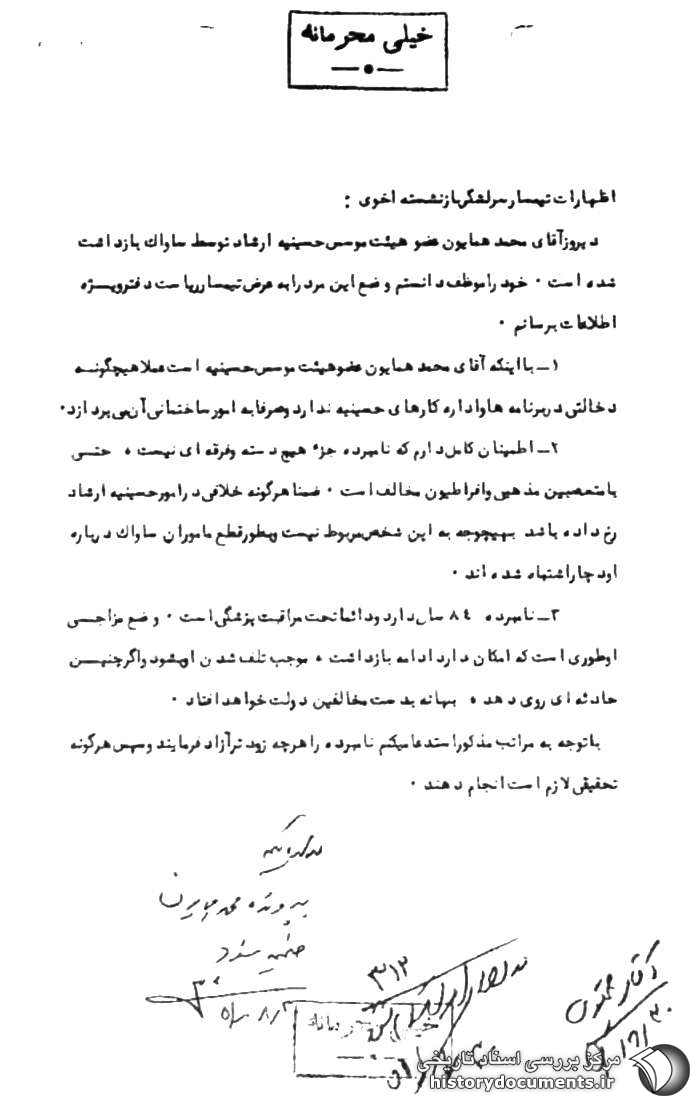 خیلی محرمانه
اظهارات تیمسار سرلشگر بازنشسته اخوی :
دیروز آقای محمد همایون عضو هیئت موسس حسینیه ارشاد توسط ساواك بازداشت
شده است ۰ خود را موظف دانستم وضع این مرد را به عرض تیمسار ریاست دفترویــژه
اطلاعات برسانم ۰
۱ــ با اینکه آقای محمد همایون عضو هیئت موسس حسینیه است عملا هیچگونــه
دخالتی در برنامه ها و اداره کارهای حسینیه ندارد و صرفا به امور ساختمانی آن می پردازد۰
۲ــ اطمینان کامل دارم که نامبرده جزء هیچ دسته و فرقه ای نیست ه حتــی
با متعصبین مذهبی و افراطیون مخالف است ۰ ضمنا هرگونه خلافی در امور حسینیه ارشاد
رخ داده باشد بهیچوجه به این شخص مربوط نیست وبطور قطع ماموران ساواك درباره
او دچار اشتباه شده اند ۰
۳ــ نامبرده ۸٤ سال دارد و دائما تحت مراقبت پزشگی است ۰ وضع مزاجــی
او طوری است که امکان دارد ادامه بازداشت ه موجب تلف شدن او بشود و اگر چنیــن
حادثه ای روی دهد ه بهانه بدست مخالفین دولت خواهد افتاد ۰
با توجه به مراتب مذکور استدعا میکنم نامبرده را هرچه زودتر آزاد فرمایند و سپس هرگونه
تحقیقی لازم است انجام دهند ۰
پرونده محمد همایون
ضمیمه شود
۳۱۲
خیلی محرمانه
مرکز بررسی اسناد تاریخی
historydocuments.ir